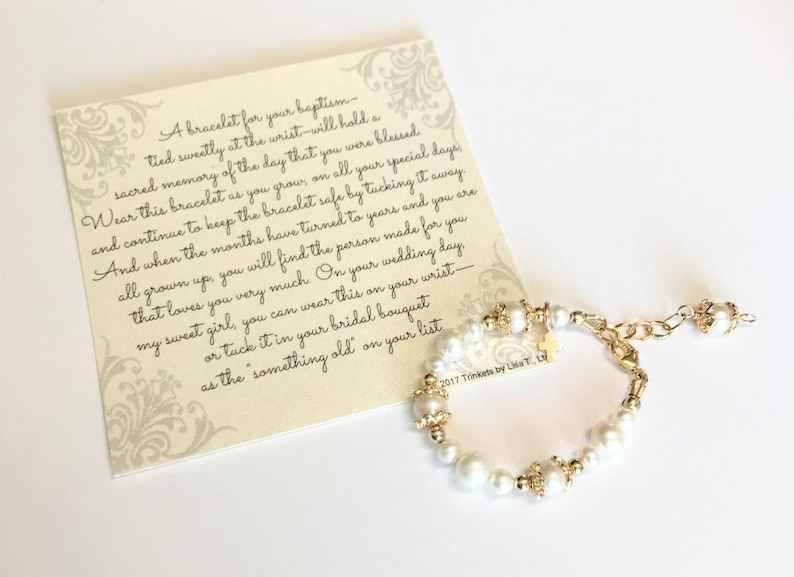 A bracelet for your baptism—
tied sweetly at the wrist—will hold a
sacred memory of the day that you were blessed.
Wear this bracelet as you grow, on all your special days,
and continue to keep the bracelet safe by tucking it away.
And when the months have turned to years and you are
all grown up, you will find the person made for you
that loves you very much. On your wedding day,
my sweet girl, you can wear this on your wrist—
or tuck it in your bridal bouquet
as the "something old" on your list.
2017 Trinkets by Lisa T.,